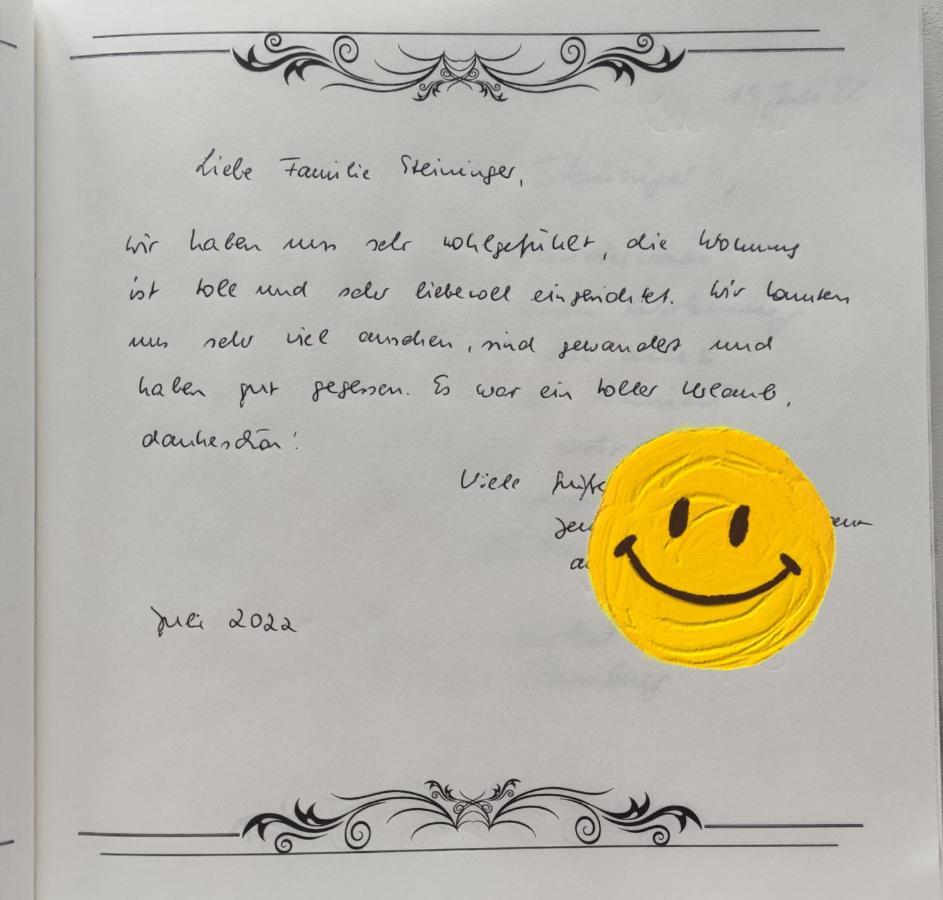 Liebe Familie Steininger,
wir haben uns sehr wohlgefühlt, die Wohnung
ist toll und sehr liebevoll eingerichtet. Wir konnten
uns sehr viel ansehen, sind gewandert und
haben gut gegessen. Es war ein toller Urlaub,
dankeschön!
Viele Grüße
Juli 2022